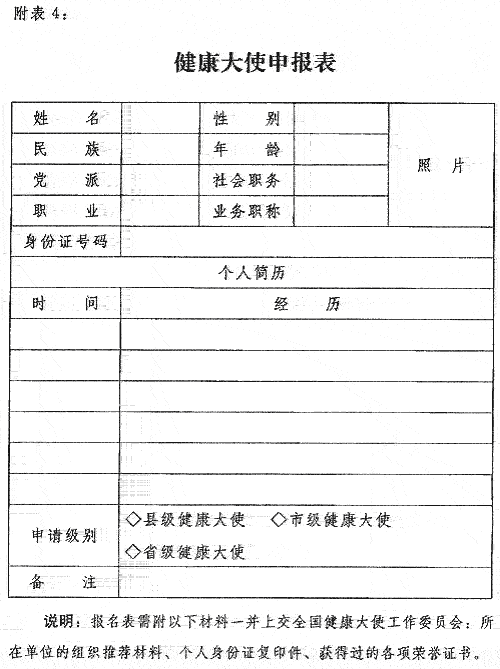 附表 4：
健康大使申报表
姓 名 性 别
民 族 年 龄
照 片
党 派 社会职务
职 业 业务职称
身份证号码
个人简历
时 间 经 历
申请级别
◇县级健康大使 ◇市级健康大使
◇省级健康大使
备 注
说明：报名表需附以下材料一并上交全国健康大使工作委员会：所
在单位的组织推荐材料、个人身份证复印件、获得过的各项荣誉证书。